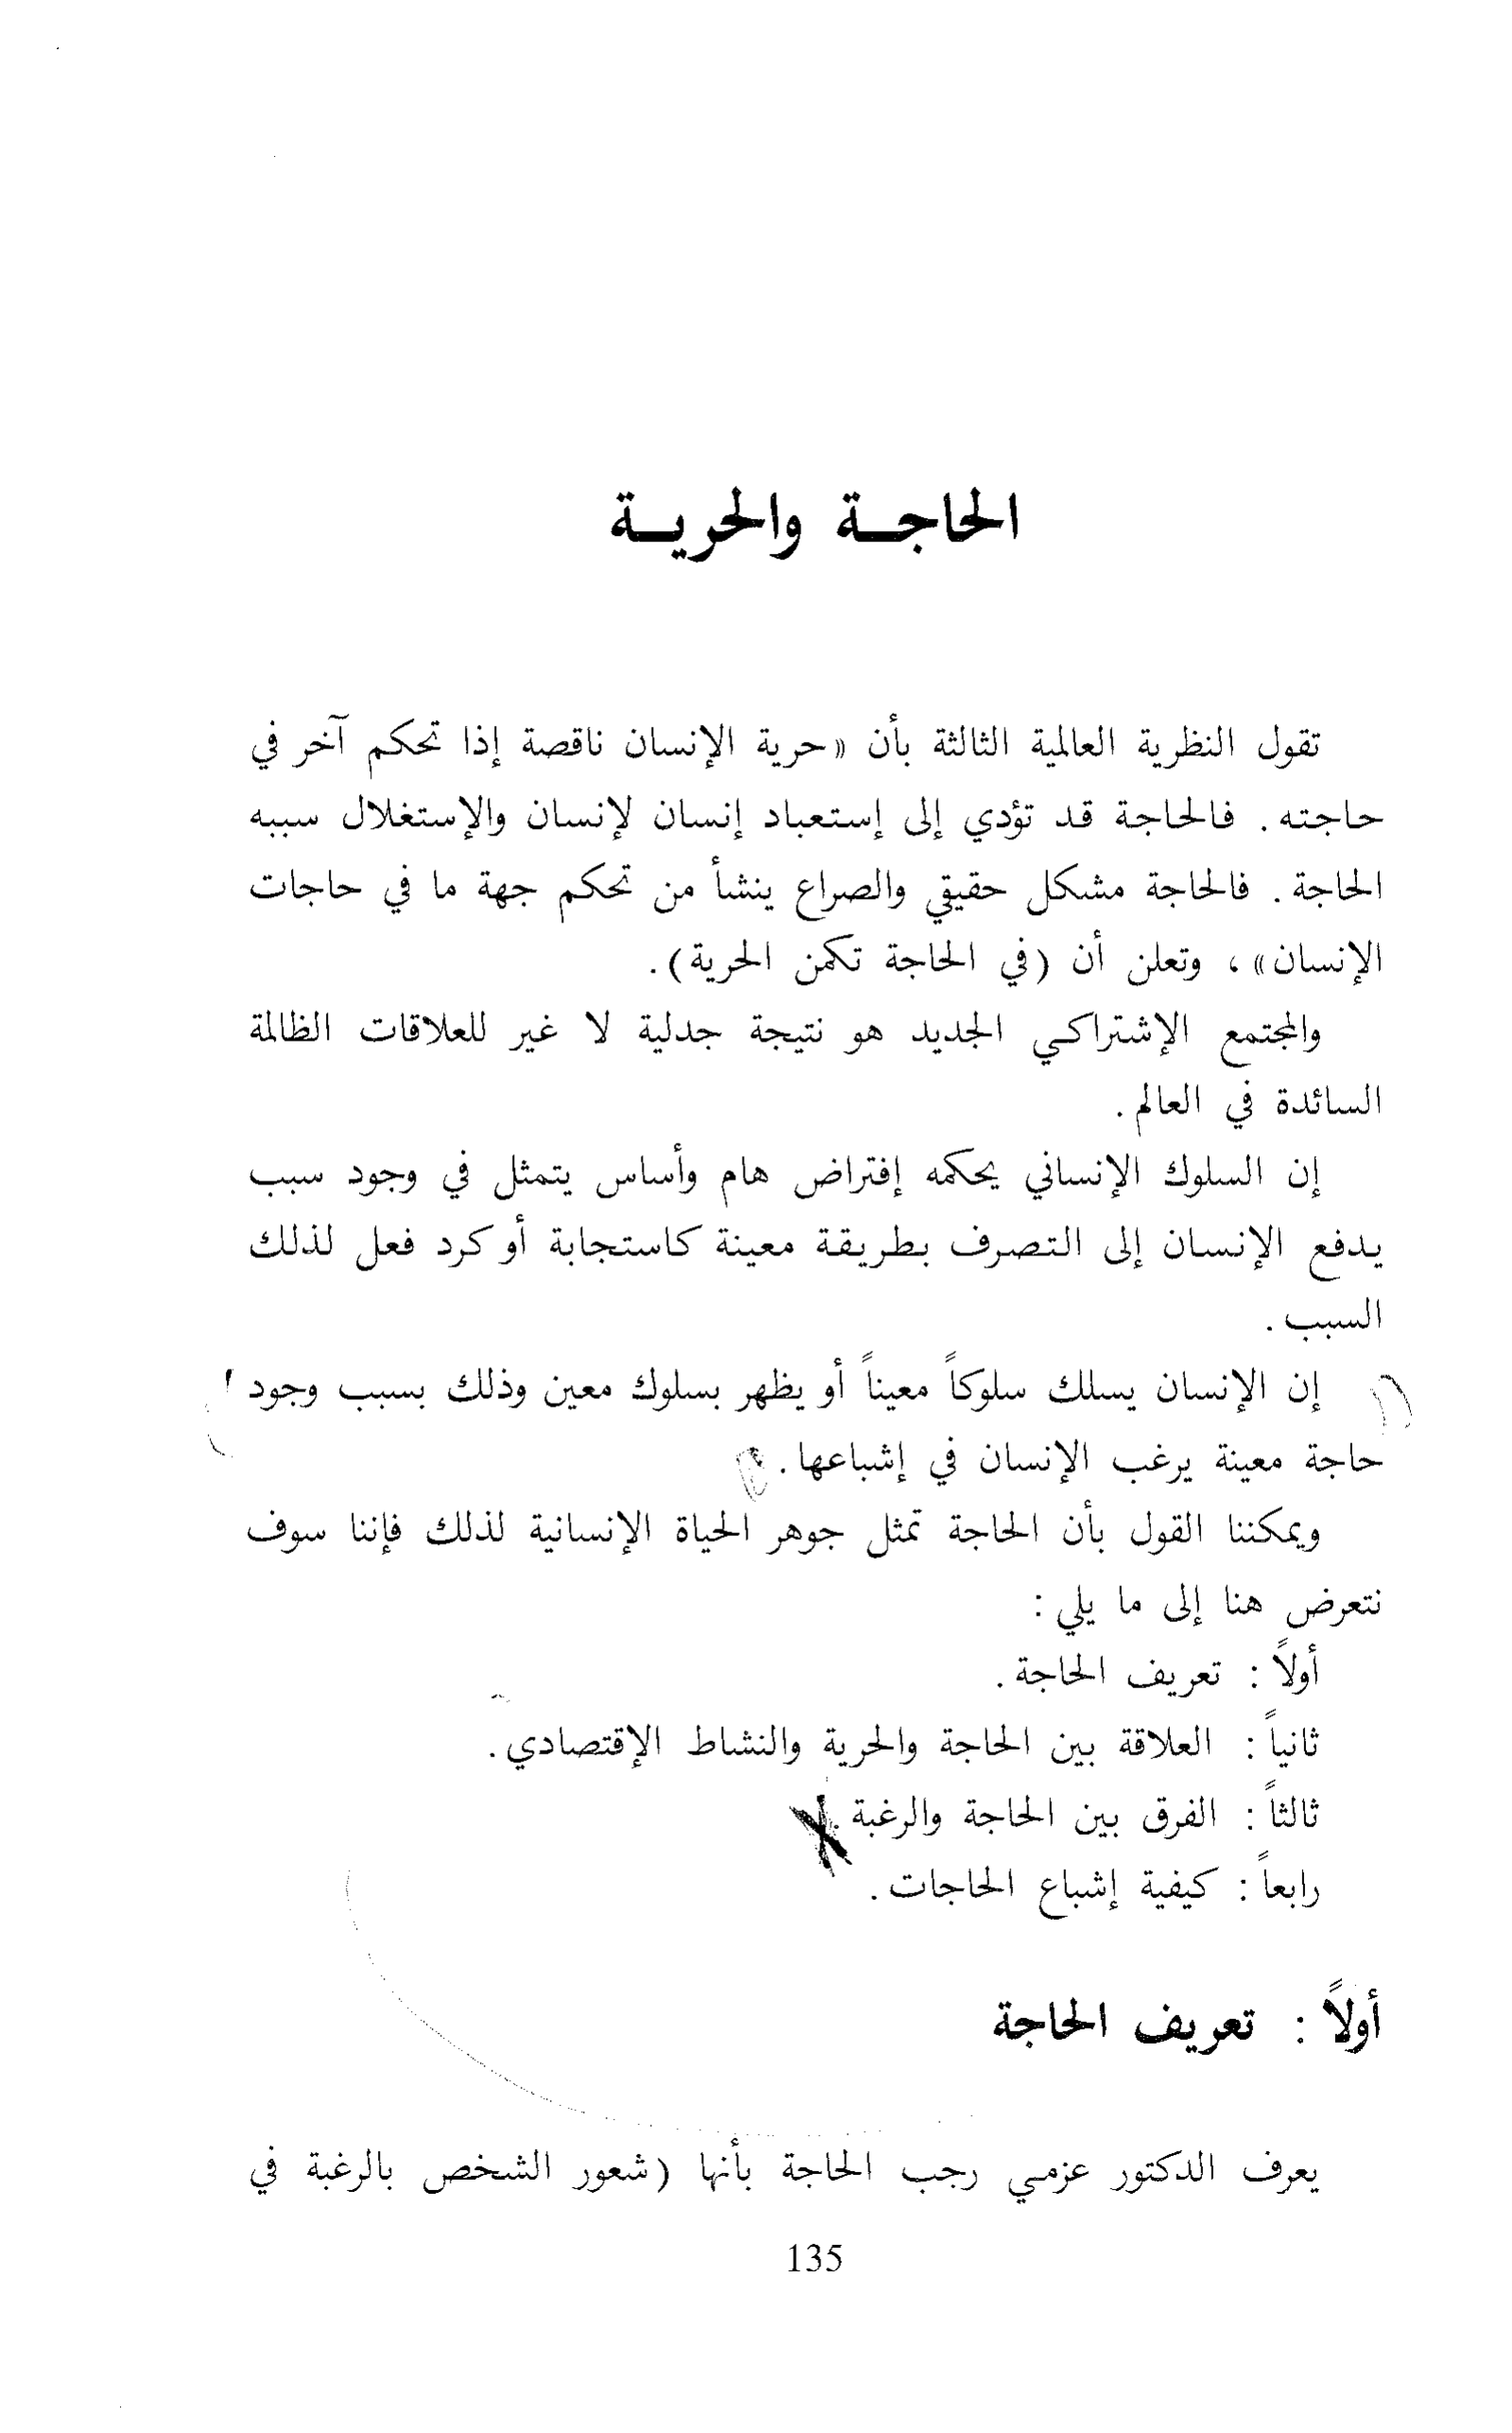 الحاجـة والحريـة
تقول النظرية العالمية الثالثة بأن «حرية الإنسان ناقصة إذا تحكم آخر في
حاجته . فالحاجة قد تؤدي إلى إستعباد إنسان لإنسان والإستغلال سببه
الحاجة . فالحاجة مشكل حقيقي والصراع ينشأ من تحكم جهة ما في حاجات
الإنسان» ، وتعلن أن (في الحاجة تكمن الحرية).
والمجتمع الإشتراكي الجديد هو نتيجة جدلية لا غير للعلاقات الظالمة
السائدة في العالم .
إن السلوك الإنساني يحكمه إفتراض هام وأساس يتمثل في وجود سبب
يدفع الإنسان إلى التصرف بطريقة معينة كاستجابة أو كرد فعل لذلك
السبب .
إن الإنسان يسلك سلوكاً معيناً أو يظهر بسلوك معين وذلك بسبب وجود
حاجة معينة يرغب الإنسان في إشباعها .
ويمكننا القول بأن الحاجة تمثل جوهر الحياة الإنسانية لذلك فإننا سوف
نتعرض هنا إلى ما يلي :
أولاً : تعريف الحاجة .
ثانياً : العلاقة بين الحاجة والحرية والنشاط الإقتصادي .
ثالثاً : الفرق بين الحاجة والرغبة .
رابعاً : كيفية إشباع الحاجات .
أولاً : تعريف الحاجة
يعرف الدكتور عزمي رجب الحاجة بأنها (شعور الشخص بالرغبة في
135